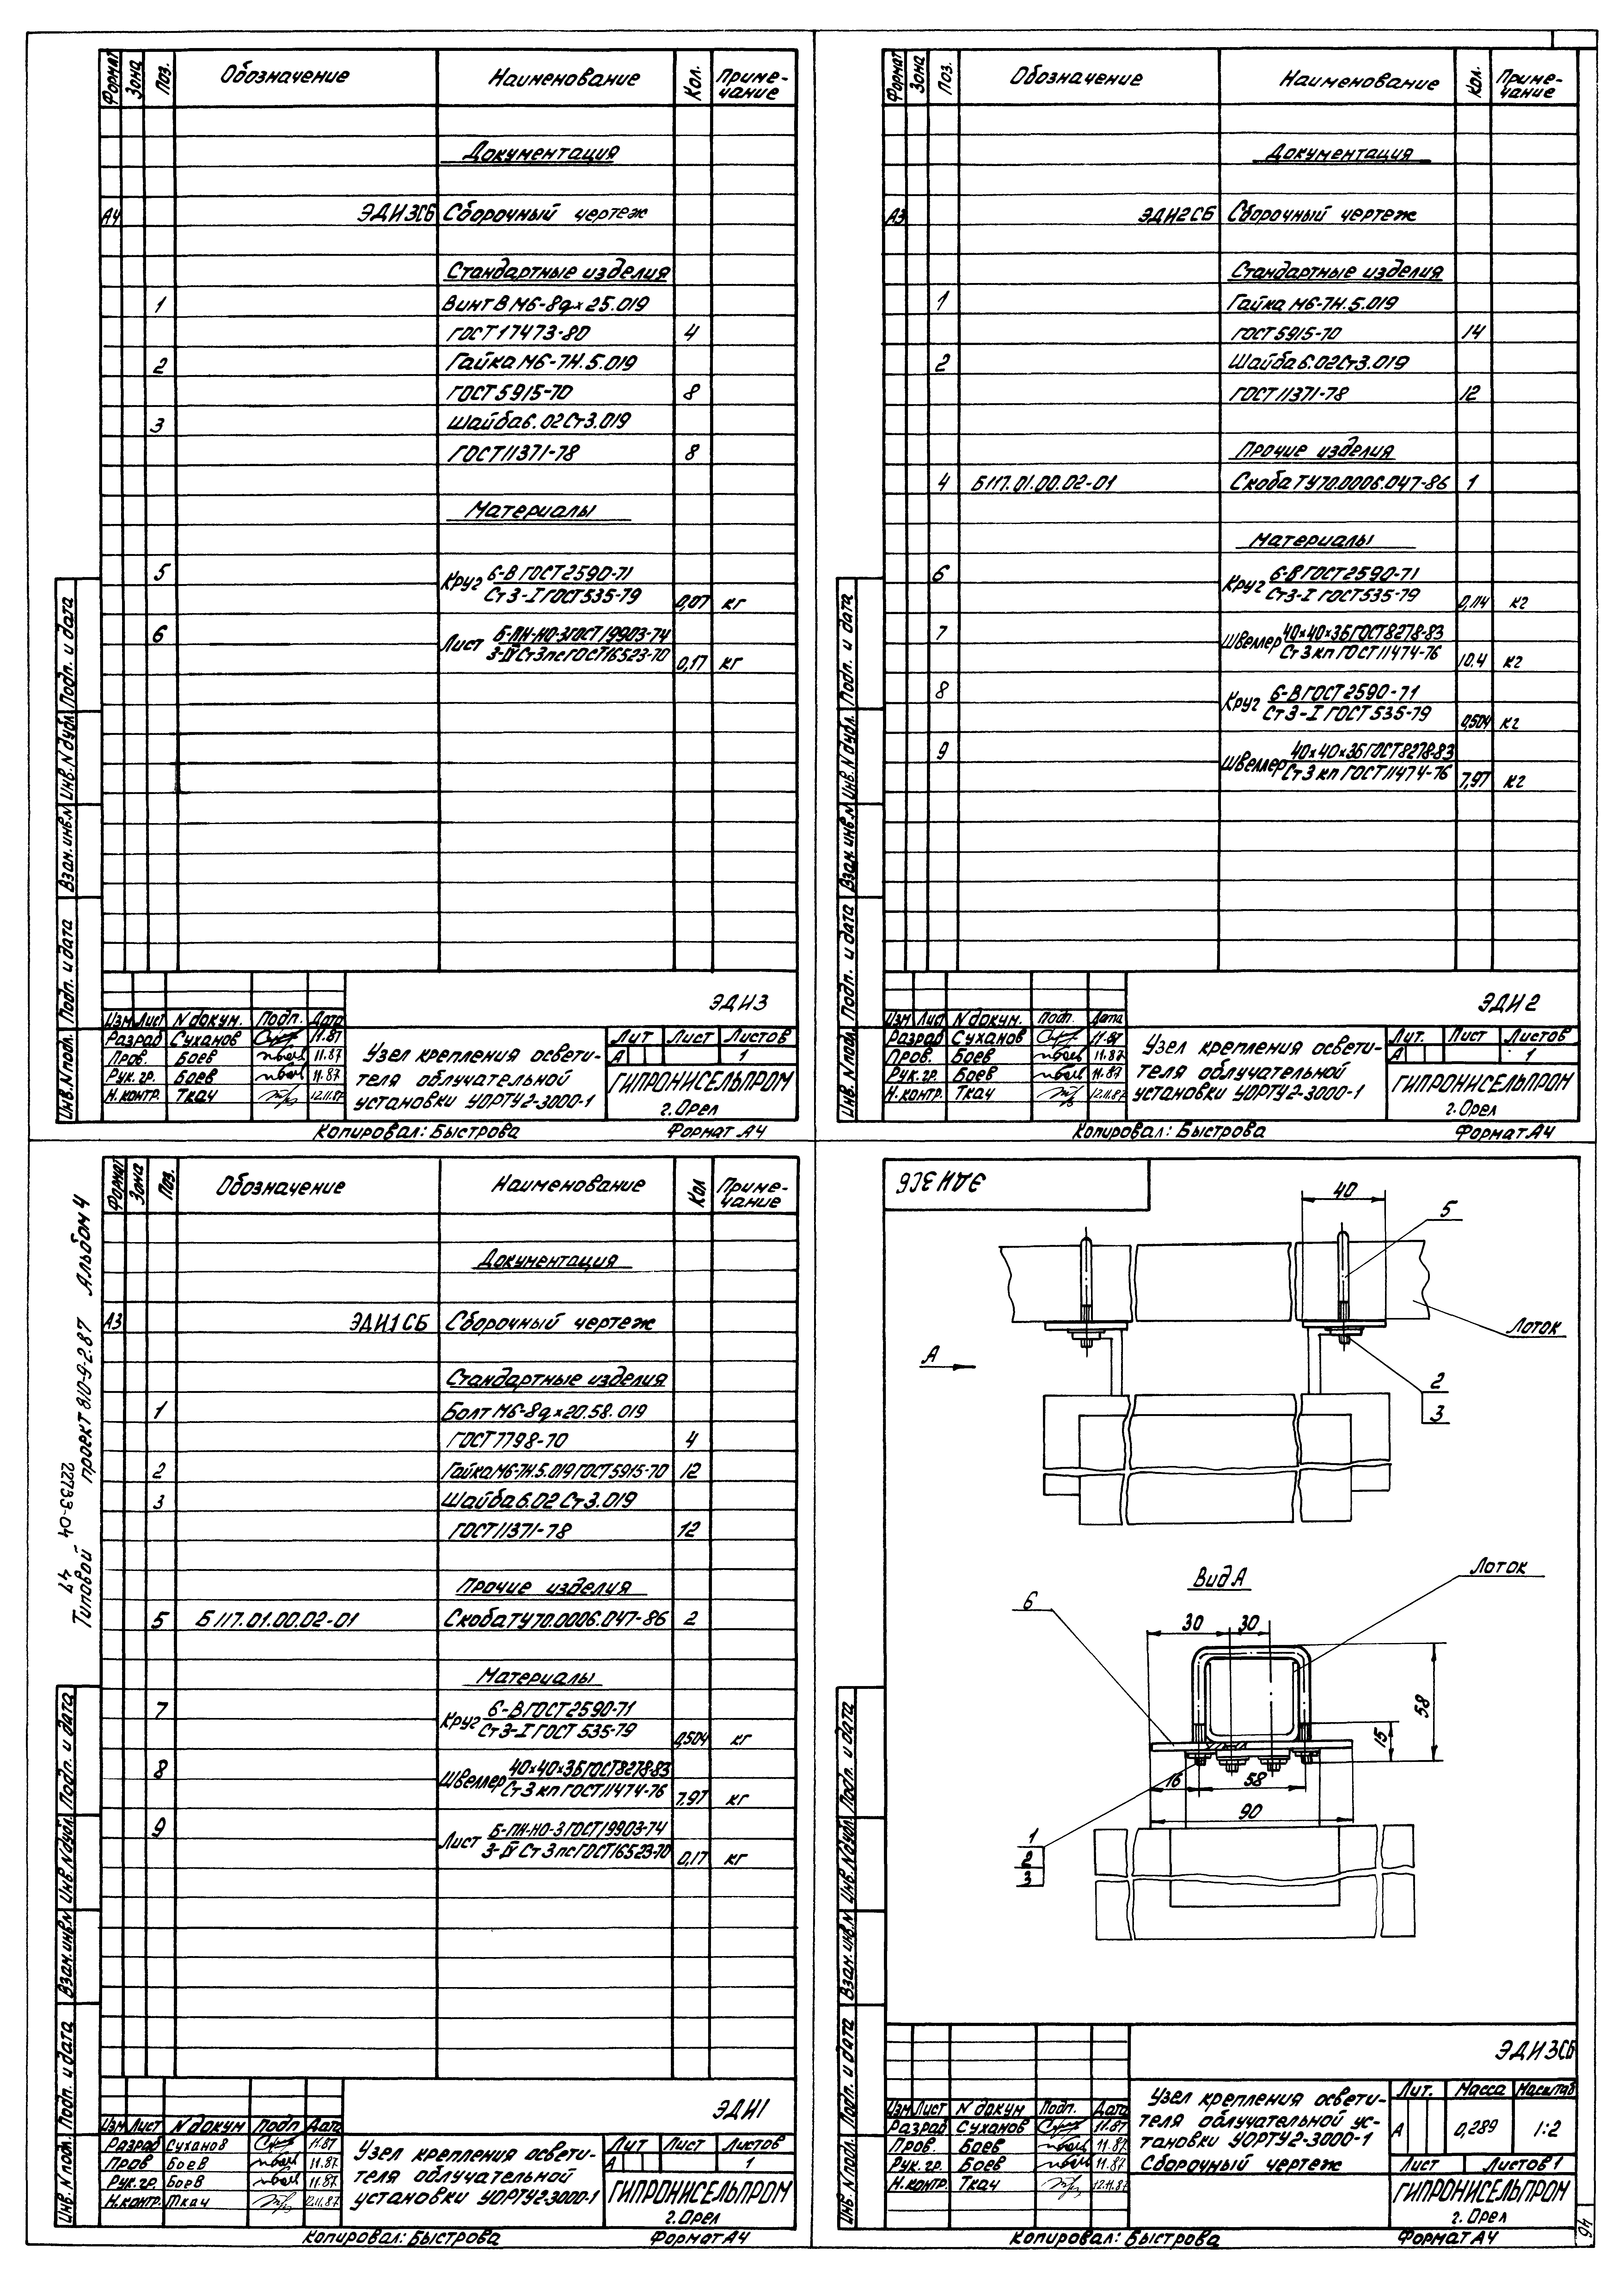 Формат Зона Поз. Обозначение Наименование Кол. Приме-
чание
Документация
А4 ЭДИ3СБ Сборочный чертеж
Стандартные изделия
1 Винт В М6-8g×25.019
ГОСТ 17473-80 4
2 Гайка М6-7Н.5.019
ГОСТ 5915-70 8
3 Шайба 6.02 Ст3.019
ГОСТ 11371-78 8
Материалы
5 Круг 6-В ГОСТ 2590-71
Ст3-I ГОСТ 535-79 0,07 кг
6 Лист Б-ПН-НО-3 ГОСТ 19903-74
3-IV Ст3пс ГОСТ 16523-70 0,17 кг
Инв. N подл. Подп. и дата Взам. инв. N Инв. N дубл. Подп. и дата
ЭДИ3
Изм Лист N докум. Подп. Дата
Разраб Суханов 11.87
Пров. Боев 11.87
Рук. гр. Боев 11.87
Н. контр. Ткач 12.11.87
Узел крепления освети-
теля облучательной
установки УОРТУ2-3000-1
Лит Лист Листов
А 1
ГИПРОНИСЕЛЬПРОМ
г. Орел
Копировал: Быстрова Формат А4
Формат Зона Поз. Обозначение Наименование Кол. Приме-
чание
Документация
А3 ЭДИ2СБ Сборочный чертеж
Стандартные изделия
1 Гайка М6-7Н.5.019
ГОСТ 5915-70 14
2 Шайба 6.02 Ст3.019
ГОСТ 11371-78 12
Прочие изделия
4 Б117.01.00.02-01 Скоба ТУ70.0006.047-86 1
Материалы
6 Круг 6-В ГОСТ 2590-71
Ст3-I ГОСТ 535-79 0,114 кг
7 Швеллер 40×40×3Б ГОСТ 8278-83
Ст3кп ГОСТ 11474-76 10,4 кг
8 Круг 6-В ГОСТ 2590-71
Ст3-I ГОСТ 535-79 0,504 кг
9 Швеллер 40×40×3Б ГОСТ 8278-83
Ст3кп ГОСТ 11474-76 7,97 кг
Инв. N подл. Подп. и дата Взам. инв. N Инв. N дубл. Подп. и дата
ЭДИ2
Изм Лист N докум. Подп. Дата
Разраб Суханов 11.87
Пров. Боев 11.87
Рук. гр. Боев 11.87
Н. контр. Ткач 12.11.87
Узел крепления освети-
теля облучательной
установки УОРТУ2-3000-1
Лит. Лист Листов
А 1
ГИПРОНИСЕЛЬПРОМ
г. Орел
Копировал: Быстрова Формат А4
Типовой проект 810-9-2.87 Альбом 4
47 22233-04
Формат Зона Поз. Обозначение Наименование Кол Приме-
чание
Документация
А3 ЭДИ1СБ Сборочный чертеж
Стандартные изделия
1 Болт М6-8g×20.58.019
ГОСТ 7798-70 4
2 Гайка М6-7Н.5.019 ГОСТ 5915-70 12
3 Шайба 6.02 Ст3.019
ГОСТ 11371-78 12
Прочие изделия
5 Б117.01.00.02-01 Скоба ТУ70.0006.047-86 2
Материалы
7 Круг 6-В ГОСТ 2590-71
Ст3-I ГОСТ 535-79 0,504 кг
8 Швеллер 40×40×3Б ГОСТ 8278-83
Ст3кп ГОСТ 11474-76 7,97 кг
9 Лист Б-ПН-НО-3 ГОСТ 19903-74
3-IV Ст3пс ГОСТ 16523-70 0,17 кг
Инв. N подл. Подп. и дата Взам. инв. N Инв. N дубл. Подп. и дата
ЭДИ1
Изм Лист N докум Подп Дата
Разраб Суханов 11.87
Пров Боев 11.87
Рук. гр. Боев 11.87
Н. контр. Ткач 12.11.87
Узел крепления освети-
теля облучательной
установки УОРТУ2-3000-1
Лит Лист Листов
А 1
ГИПРОНИСЕЛЬПРОМ
г. Орел
Копировал: Быстрова Формат А4
ЭДИ3СБ
40
5
Лоток
А
2
3
Вид А
Лоток
6
30 30
58
15
16 58
90
1
2
3
Инв. N подл. Подп. и дата Взам. инв. N Инв. N дубл. Подп. и дата
ЭДИ3СБ
Изм Лист N докум Подп. Дата
Разраб Суханов 11.87
Пров. Боев 11.87
Рук. гр. Боев 11.87
Н. контр. Ткач 12.11.87
Узел крепления освети-
теля облучательной ус-
тановки УОРТУ2-3000-1
Сборочный чертеж
Лит. Масса Масштаб
А 0,289 1:2
Лист Листов 1
ГИПРОНИСЕЛЬПРОМ
г. Орел
Копировал: Быстрова Формат А4
46